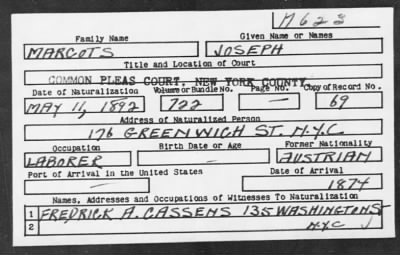 M623
Family Name Given Name or Names
MARGOTS JOSEPH
Title and Location of Court
COMMON PLEAS COURT, NEW YORK COUNTY
Date of Naturalization Volume or Bundle No. Page No. Copy of Record No.
MAY 11, 1892 722 — 69
Address of Naturalized Person
176 GREENWICH ST. N.Y.C
Occupation Birth Date or Age Former Nationality
LABORER AUSTRIAN
Port of Arrival in the United States Date of Arrival
— 1874
Names, Addresses and Occupations of Witnesses To Naturalization
1 FREDRICK A. CASSENS 135 WASHINGTON ST
2 N.Y.C